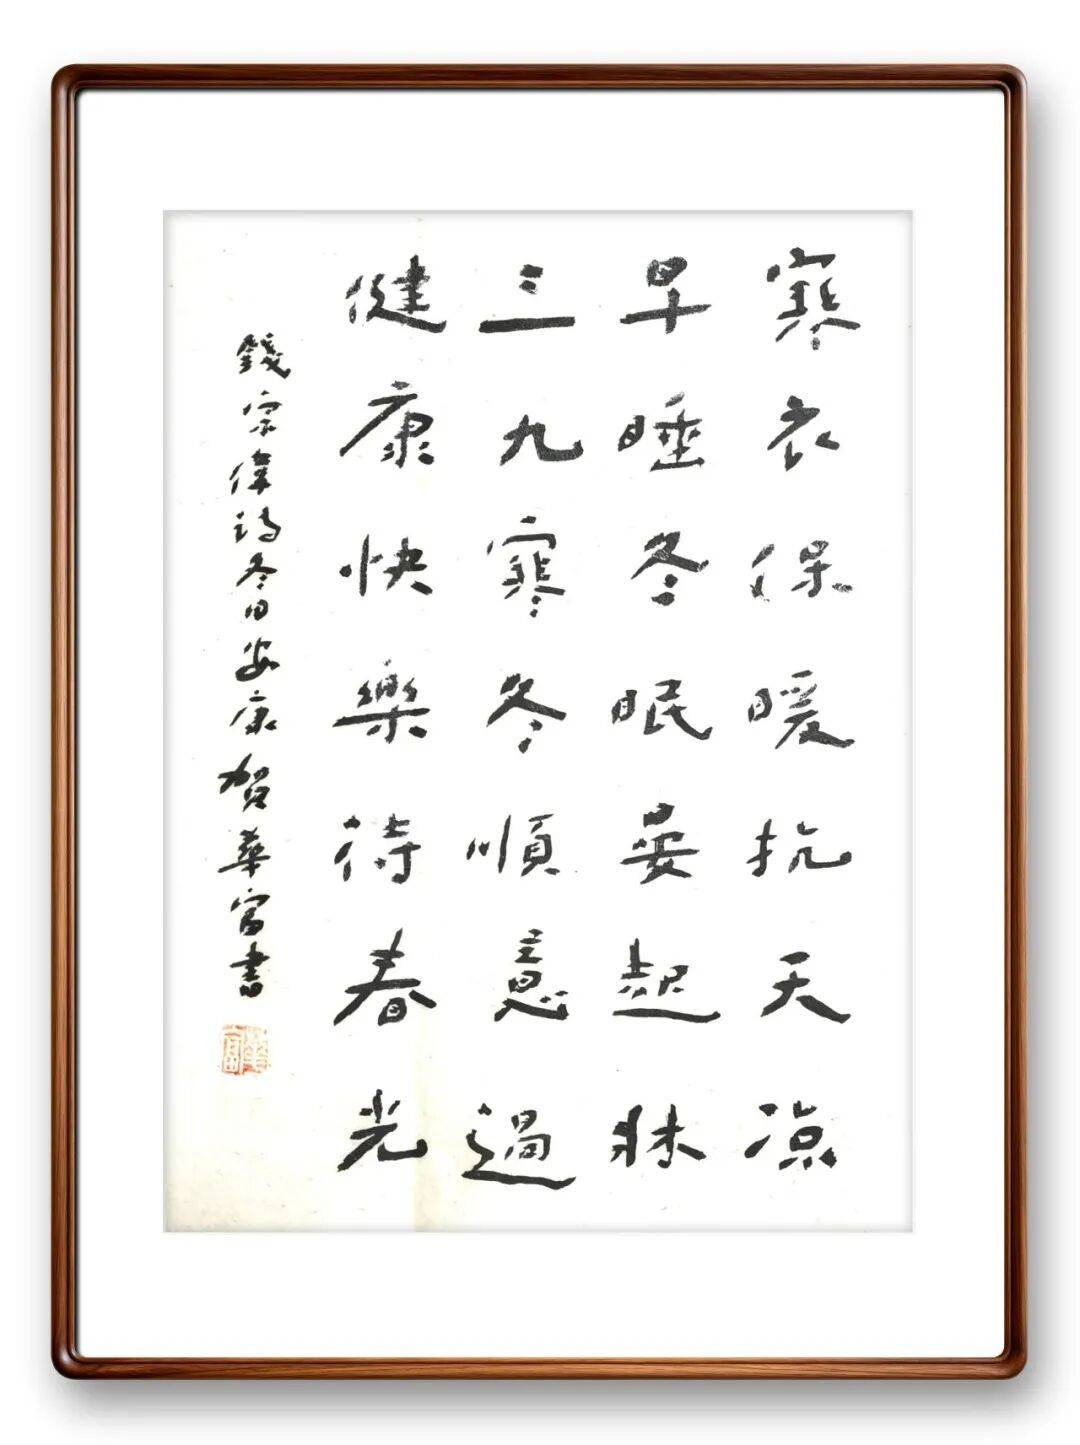 寒衣保暖抗天凉
早睡冬眠晏起牀
三九寒冬順意過
健康快樂待春光
錢宗偉詩冬日安康賀華富書
華富